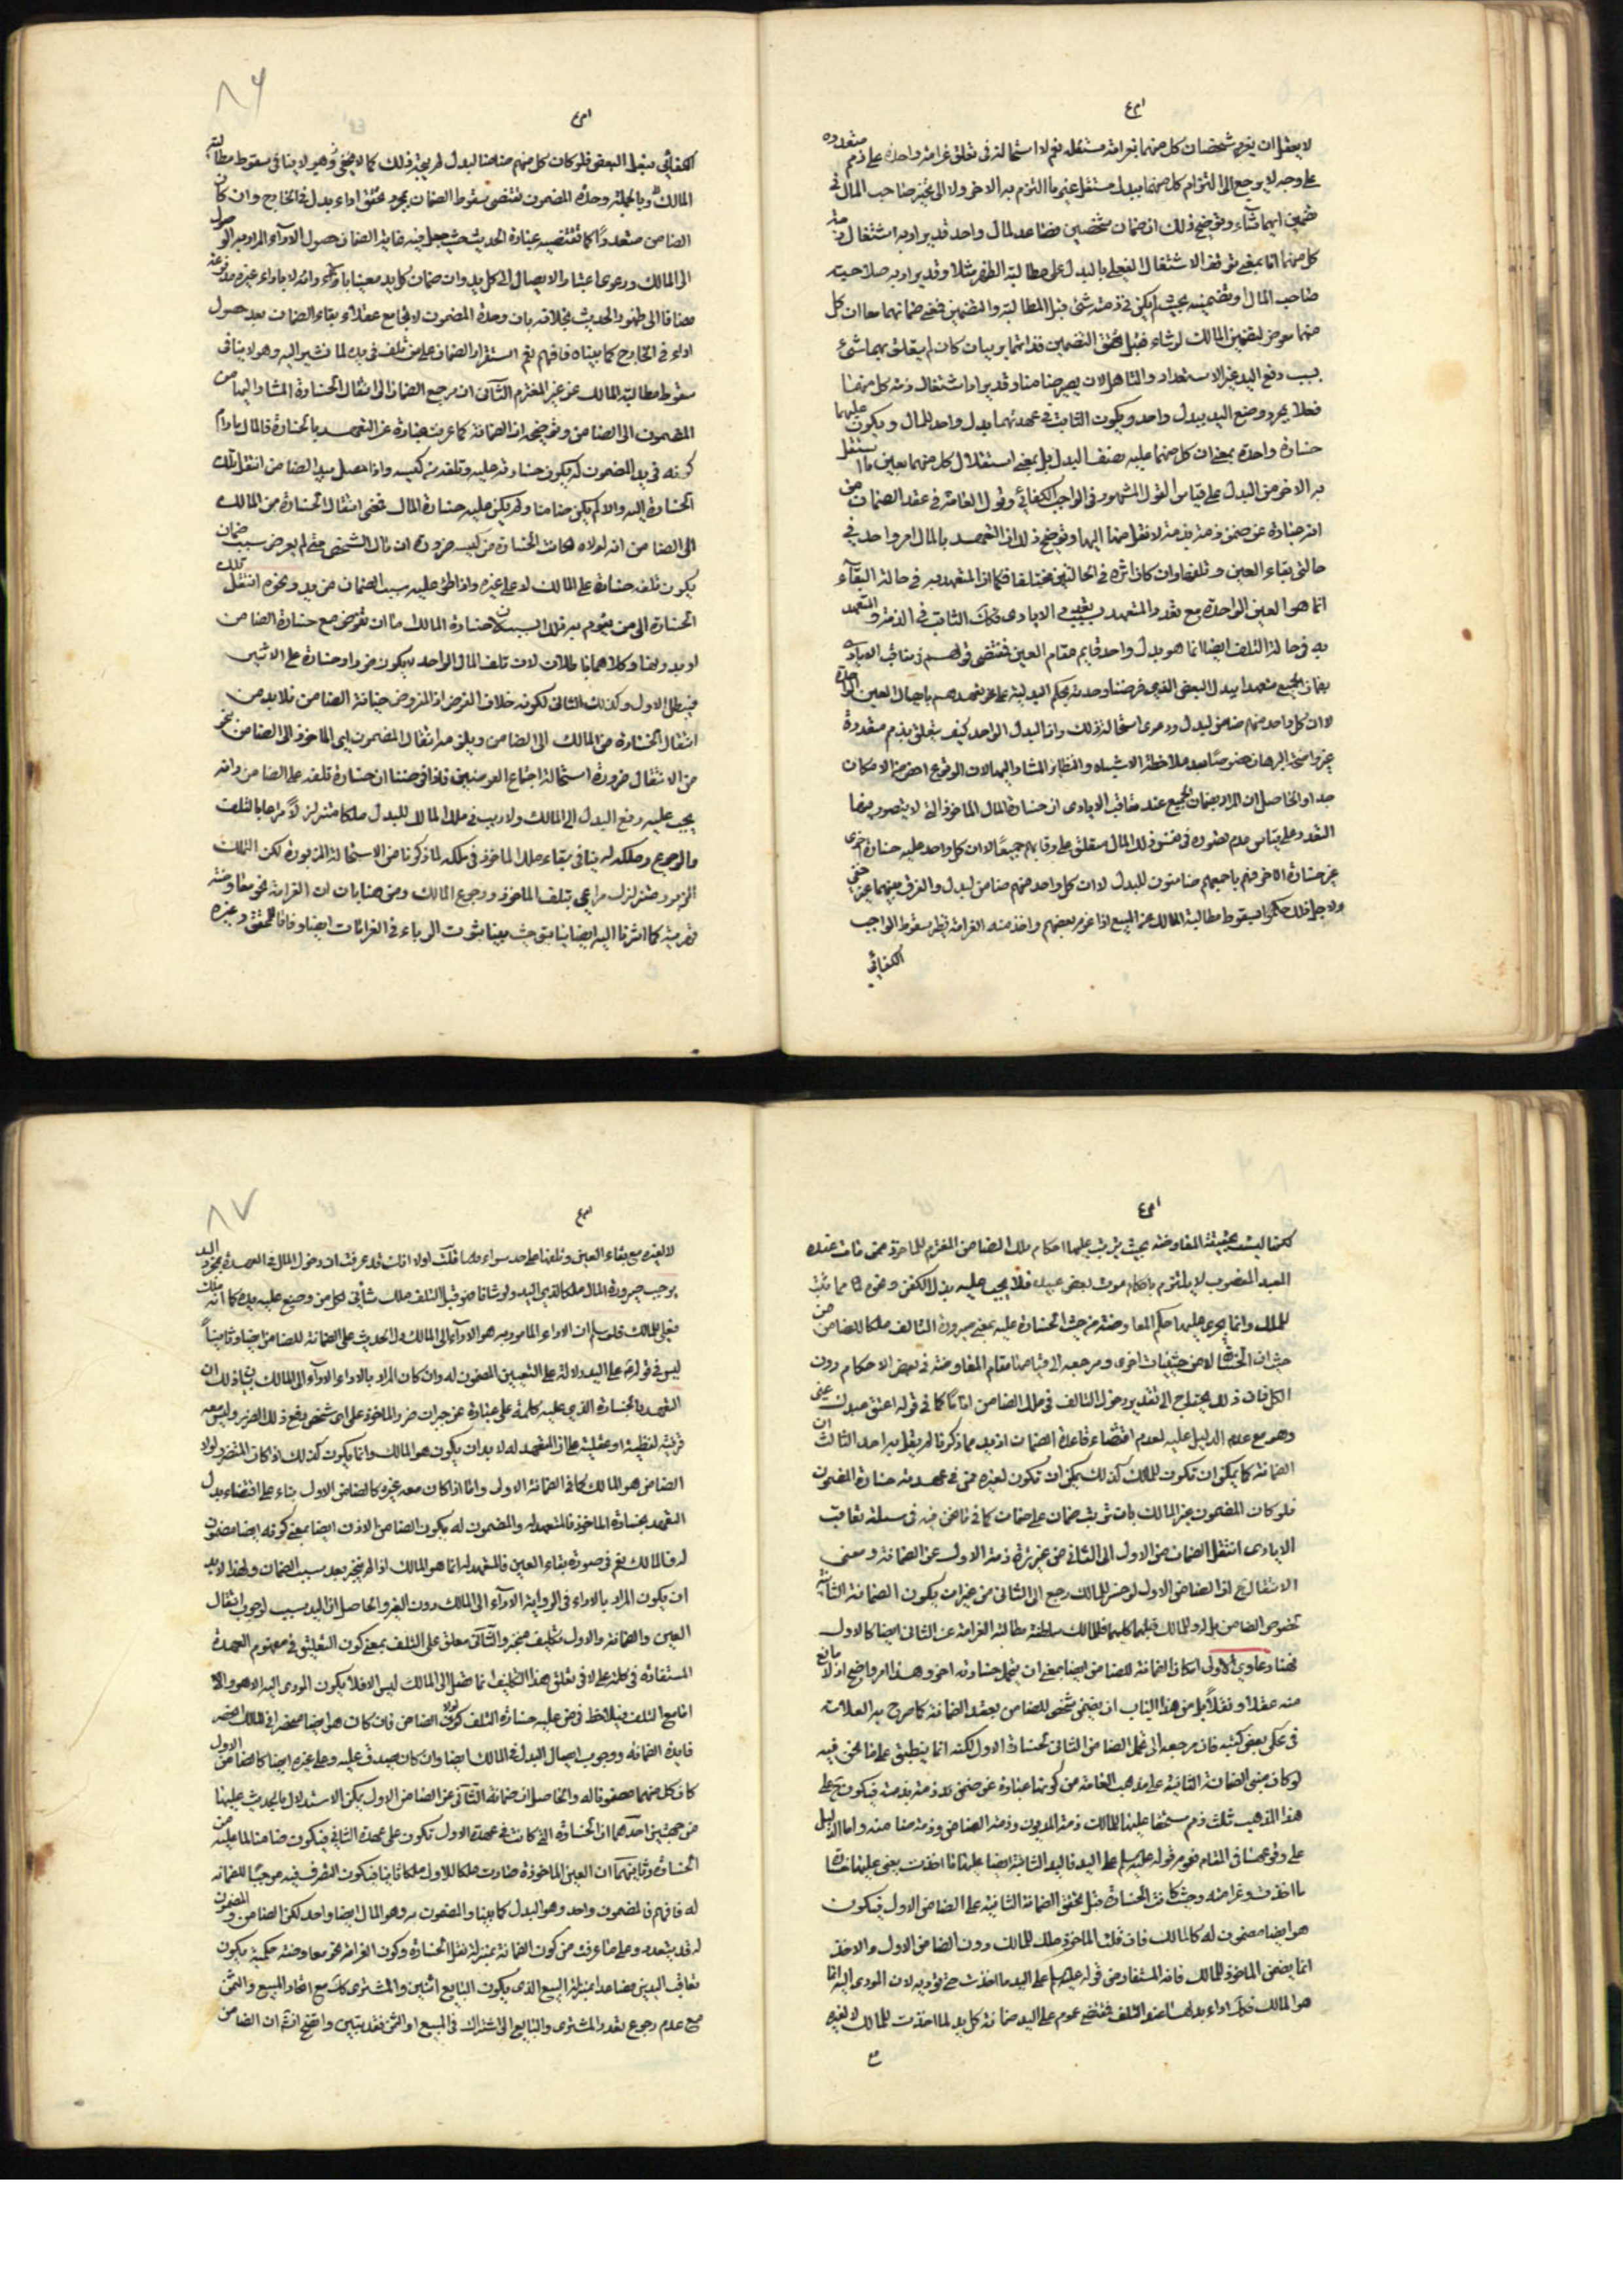 لا يعقل ان يغرم شخصان كل منهما بغرامة مستقلة نعم لا استحالة فى تعلق غرامة واحدة على ذمم متعددة
على وجه لا يرجع الى التزام كل منهما ببدل مستقل غير ما التزم به الاخر ولا الى تخير صاحب المال فى
تضمين ايهما شاء وتوضيح ذلك ان ضمان شخصين فصاعدا لمال واحد قد يراد به اشتغال ذمة
كل منهما
صاحب المال
منهما معرض لتضمين المالك لو شاء فقبل تحقق التضمين
بسبب وضع اليد غير الاستعداد والتاهل لان يصير ضامنا وقد يراد اشتغال ذمة كل منهما
فعلا بمجرد وضع اليد ببدل واحد ويكون الثابت فى عهدتهما بدل واحد للمال ويكون عليهما
خسارة واحدة بمعنى ان كل منهما عليه نصف البدل بل بمعنى استقلال كل منهما بعين ما استقل
به الاخر من البدل على قياس القول المشهور فى الواجب الكفائى وقول العامة فى عقد الضمان من
انه عبارة عن ضم ذمة بذمة لا نقل منها اليها وتوضيح ذلك ان التعهد بالمال امر واحد فى
حالتى بقاء العين وتلفها وان كان اثره فى الحالتين مختلفا فكما ان المتعهد به فى حالة البقاء
انما هو العين الواحدة مع تعدد المتعهد
به فى حالة التلف ايضا انما هو بدل واحد قايم مقام العين فمقتضى قولهم فى تعاقب الايادى
بضمان الجميع
لا ان كل واحد منهم ضامن لبدل ودعوى استحالة ذلك وان البدل الواحد كيف يتعلق بذمم متعددة
غير واضحة البرهان خصوصا بعد ملاحظة الاشباه والنظاير المشار اليها لان الوقوع اخص من الامكان
جدا والحاصل ان المراد بضمان الجميع عند تعاقب الايادى ان خسارة المال الماخوذ التى لا يتصور فيها
التعدد على قياس عدم تصوره فى نفس ذلك المال متعلق على رقابهم جميعا لا ان كل واحد عليه خسارة اخرى
غير خسارة الاخر فهم باجمعهم ضامنون للبدل لا ان كل واحد منهم ضامن لبدل والفرق بينهما غير خفى
ولاجل ذلك حكموا بسقوط مطالبة المالك عن الجميع اذا غرم بعضهم واخذ منه الغرامة نظير سقوط الواجب
الكفائى
٨٦
الكفائى بفعل البعض فلو كان كل منهم ضامنا لبدل لم يتجه ذلك كما لا يخفى وهو لا ينافى سقوط مطالبة
المالك وبالجملة وحدة المضمون تقتضى سقوط الضمان بمجرد تحقق اداء بدل فى الخارج وان كان
الضامن متعددا كما تقتضيه عبارة الحديث حيث جعل فيه غاية الضمان حصول الاداء المراد به الوصول
الى المالك ودعوى اعتبار الايصال الى كل يد وان ضمان كل يد مغيى بادائه وانه لا باداء غيره مدفوعة
مضافا الى ظهور الحديث بخلافه بان وحدة المضمون لا تجامع عقلا بقاء الضمان بعد حصول
اداء فى الخارج كما بيناه فافهم نعم استقرار الضمان على من تلف فى يده لما نشير اليه وهو لا ينافى
سقوط مطالبة المالك عن غير المغترم الثانى ان مرجع الضمان الى انتقال الخسارة المشار اليها من
المضمون الى الضامن وتوضيحه ان الضمانة كما عرفت عبارة عن التعهد بالخسارة فالمال مادام
كونه فى يد المضمون له يكون خسارته عليه وتلفه من كيسه واذا حصل بيد الضامن انتقل تلك
الخسارة اليه والا لم يكن ضامنا ولم يكن عليه خسارة المال فمعنى انتقال الخسارة من المالك
الى الضامن انه لولاه لكانت الخسارة من كيسه ضرورة ان مال الشخص متى لم يعرض سبب ضمان
يكون تلفه خسارة على المالك لا على غيره واذا طرء عليه سبب الضمان من يد ونحوه انتقل تلك
الخسارة الى من يقوم به ذلك السبب
او بدونها وكلاهما باطلان لان تلف المال الواحد لا يكون
فيبطل الاول وكذلك الثانى لكونه خلاف الفرض اذ المفروض ضمانة الضامن فلا بد من
انتقال الخسارة من المالك الى الضامن ويلزمه انتقال المضمون اى الماخوذ الى الضامن نحو
من الانتقال ضرورة استحالة اجتماع العوضين
يجب عليه دفع البدل الى المالك ولا ريب فى ملك المالك للبدل ملكا متزلزلا مراعا بالتلف
والرجوع وملكه له ينافى بقاء ملك الماخوذ فى ملكه لما ذكرنا من الاستحالة المزبورة لكن التملك
المزبور متزلزل مراعى بتلف الماخوذ ورجوع المالك ومن هنا بان ان الغرامة نحو معاوضة
قهرية كما اشرنا اليه ايضا فيما سبق حيث بينا ثبوت الرباء فى الغرامات ايضا وفاقا للمحقق وغيره
لكنها ليست بحقيقة المعاوضة بحيث يترتب عليها احكام ملك الضامن المغترم للماخوذ فمن مات عنده
العبد المغصوب لا يلتزم باحكام موت بعض عبيده فلا يجب عليه بذل الكفن ونحوه مما يثبت
للملك وانما يجرى عليها حكم المعاوضة من حيث الخسارة عليه بمعنى صيرورة التالف ملكا للضامن من
حيث ان الخسارة لا من حيثيات اخرى ومرجعه الى قيامها مقام المعاوضة فى بعض الاحكام دون
الكل فان ذلك يحتاج الى تقدير دخول التالف فى ملك الضامن اناما كما فى قوله اعتق عبدك عنى
وهو مع عدم الدليل عليه لعدم اقتضاء قاعدة الضمان ازيد مما ذكرنا لم يقل به احد الثالث ان
الضمانة كما يمكن ان تكون للمالك كذلك يمكن ان تكون لغيره ممن فى عهدته خسارة المضمون
فلو كان المضمون غير المالك بان ترتب ضمان على ضمان كما فى ما نحن فيه فى مسئلة تعاقب
الايادى انتقل الضمان من الاول الى الثانى من غير برائة ذمة الاول عن الضمانة ومعنى
الانتقال ح ان الضامن الاول لو خسر للمالك رجع الى الثانى من غير ان يكون الضمانة الثانية
لخصوص الضامن بل له وللمالك كليهما فللمالك سلطنة مطالبة الغرامة عن الثانى ايضا كالاول
فهنا دعاوى الاولى امكان الضمانة للضامن ايضا بمعنى ان يتحمل خسارته اخر وهذا امر واضح اذ لا مانع
منه عقلا ونقلا بل من هذا الباب ان يضمن شخص للضامن بعقد الضمانة كما صرح به العلامة
فى محكى بعض كتبه فان مرجعه الى تحمل الضامن الثانى لخسارة الاول لكنه انما ينطبق على ما نحن فيه
لو كان مبنى الضمانة الثانية على مذهب العامة من كونها عبارة عن ضم ذمة بذمة فيكون ح على
هذا المذهب ثلث ذمم مستحقا عليها المالك ذمة المديون وذمة الضامن وذمة ضامنه واما الدليل
على وقوعها فى المقام فعموم قوله عليه السلم على اليد فاليد الثانية ايضا عليها ما اخذت يعنى عليها خسارة
ما اخذت وغرامته وحيث كانت الخسارة قبل تحقق الضمانة الثانية على الضامن الاول فيكون
هو ايضا مضمون له كالمالك فان قلت الماخوذ ملك للمالك دون الضامن الاول والاخذ
انما يضمن الماخوذ للمالك فانه المستفاد من قوله عليه السلم على اليد ما اخذت حتى تؤديه لان المودى اليه انما
هو المالك فكذا اداء بدلها عند التلف فمقتضى عموم على اليد ضمانة كل يد لما اخذت للمالك لا لغيره
٨٧
لا لغيره مع بقاء العين وتلفها على حد سواء قلت اولا انك قد عرفت ان دخول المال فى العهدة بمجرد اليد
يوجب صيرورة المال ملكا لذى اليد ولو شانا فهو قبل التلف ملك شأنى لكل من وضع عليه يده كما انه ملك
فعلى للمالك فلو سلم ان الاداء المامور به هو الاداء الى المالك دل الحديث على الضمانة للضامن ايضا وثانيا
ليس فى قوله على اليد دلالة على التعيين المضمون له وان كان المراد بالاداء الاداء الى المالك بيان ذلك ان
التعهد بالخسارة الذى عليه كلمة على عبارة عن جبران ضرر الماخوذ على اى شخص وقع ذلك الضرر وليس معه
قرينة لفظية او عقلية على ان المتعهد له لا بد ان يكون هو المالك وانما يكون كذلك اذا كان المتضرر لولا
الضامن هو المالك كما فى الضمانة الاولى واما اذا كان معه غيره كالضامن الاول بناء على اقتضاء بدل
التعهد بخسارة الماخوذ فالمتعهد له والمضمون له يكون الضامن الاول ايضا بمعنى كونه ايضا مضمون
له فالمالك نعم فى صورة بقاء العين فالمتعهد له انما هو المالك اذ لم يتخير بعد سبب الضمان ولهذا لا بد
ان يكون المراد بالاداء فى الرواية الاداء الى المالك دون الغير والحاصل ان اليد سبب لوجوب انتقال
العين والضمانة والاول تكليف منجز والثانى معلق على التلف بمعنى كون التعليق فى مفهوم العهدة
المستفادة من كلمة على لا فى تعلق هذا التكليف
اما مع التلف فيلاحظ من عليه خسارة التلف لولا الضامن فان كان هو ايضا منحصرا فى المالك انحصر
فايدة الضمانة ووجوب ايصال البدل فى المالك ايضا وان كان يصدق عليه وعلى غيره ايضا كالضامن الاول
كان كل منهما مضمونا له والحاصل ان ضمانة الثانى عن الضامن الاول يمكن الاستدلال بالحديث عليها
من جهتين احدهما ان الخسارة التى كانت فى عهدة الاول تكون على عهدة الثانى فيكون ضامنا لما عليه من
الخسارة وثانيهما ان العين الماخوذة صارت ملكا للاول ملكا شانيا فيكون التصرف فيه موجبا للضمانة
له فافهم فالمضمون واحد وهو البدل كما بينا والمضمون به وهو المال ايضا واحد لكن الضامن والمضمون
له قد يتعدد وعلى ما عرفت من كون الضمانة بمنزلة نقل الخسارة وكون الغرامة نحو معاوضة حكمية يكون
تعاقب اليدين فصاعدا بمنزلة البيع الذى يكون البايع اثنين والمشترى كذلك مع اتحاد المبيع والثمن
مع عدم رجوع تعدد المشترى والبايع الى اشتراك فى المبيع او الثمن فقد تبين واتضح ان الضامن